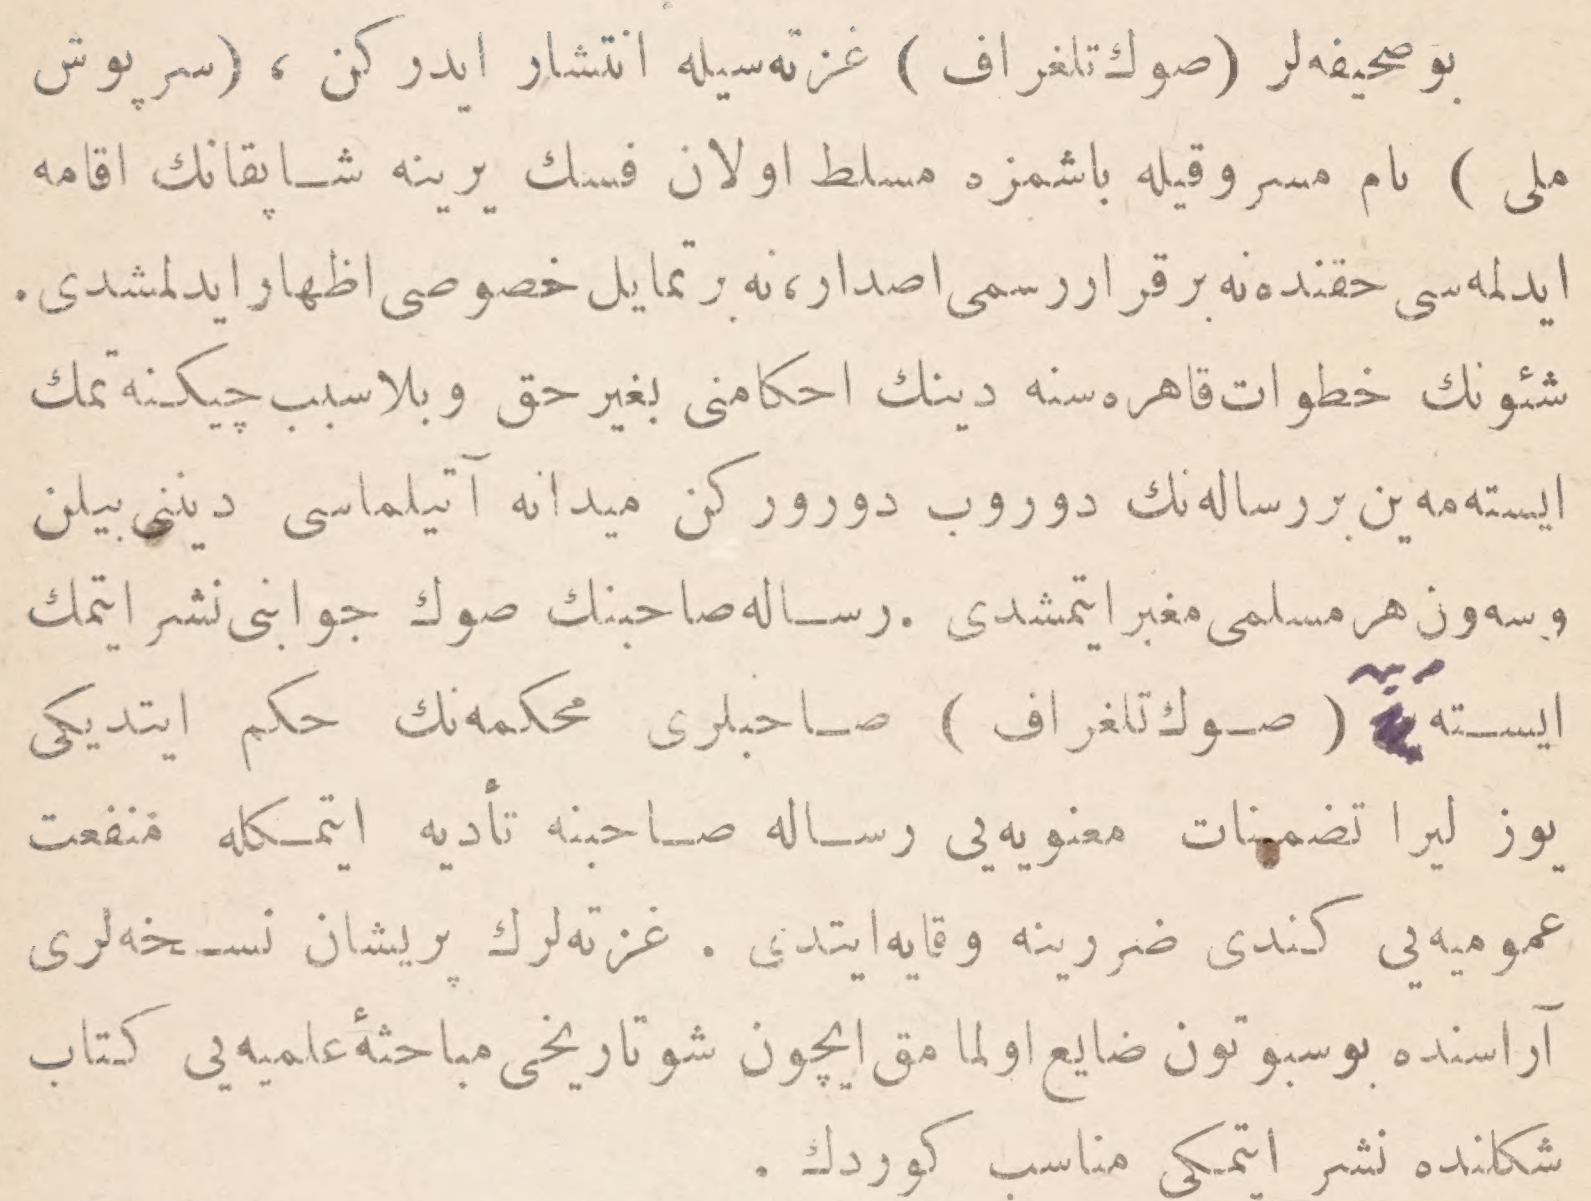 بو صحیفه‌لر (صوك تلغراف) غزته‌سیله انتشار ایدركن ، (سرپوش
ملی) نام مسروقیله باشمزه مسلط اولان فسك یرینه شـاپقانك اقامه
ایدلمه‌سی حقنده نه برقرار رسمی اصدار، نه بر تمایل خصوصی اظهار ایدلمشدی.
شئونك خطوات قاهره‌سنه دینك احكامنی بغیر حق و بلاسبب چیكنه‌تمك
ایسته‌مه‌ین بررساله‌نك دوروب دوروركن میدانه آتیلماسی دیننی بیلن
وسه‌ون هر مسلمی مغبر ایتمشدی . رسـاله صاحبنك صوك جوابنی نشر ایتمك
ایسـته‌میه‌ن (صـوك تلغراف) صـاحبلری محكمه‌نك حكم ایتدیكی
یوز لیرا تضمینات معنویه‌یی رسـاله صـاحبنه تأدیه ایتمـكله منفعت
عمومیه‌یی كندی ضررینه وقایه ایتدی . غزته‌لرك پریشان نسـخه‌لری
آراسنده بوسبوتون ضایع اولمامق ایچون شو تاریخی مباحثۀ علمیه‌یی كتاب
شكلنده نشر ایتمـكی مناسب كوردك .